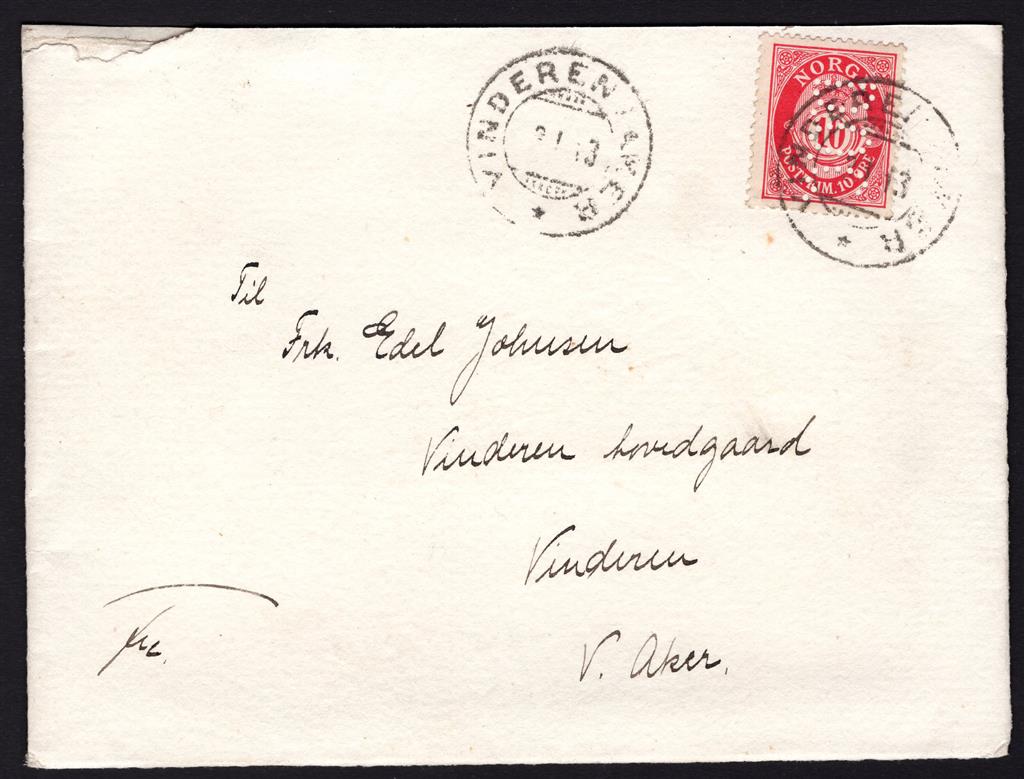 VINDEREN I AKER
NORGE
10
POSTFRIM. 10 ØRE
Til
Frk. Edel Johnsen
Vinderen hovedgaard
Vinderen
V. Aker.